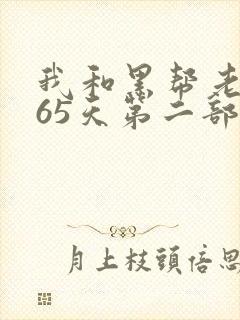 我和黑帮老
65天第二部
月上枝頭倍思